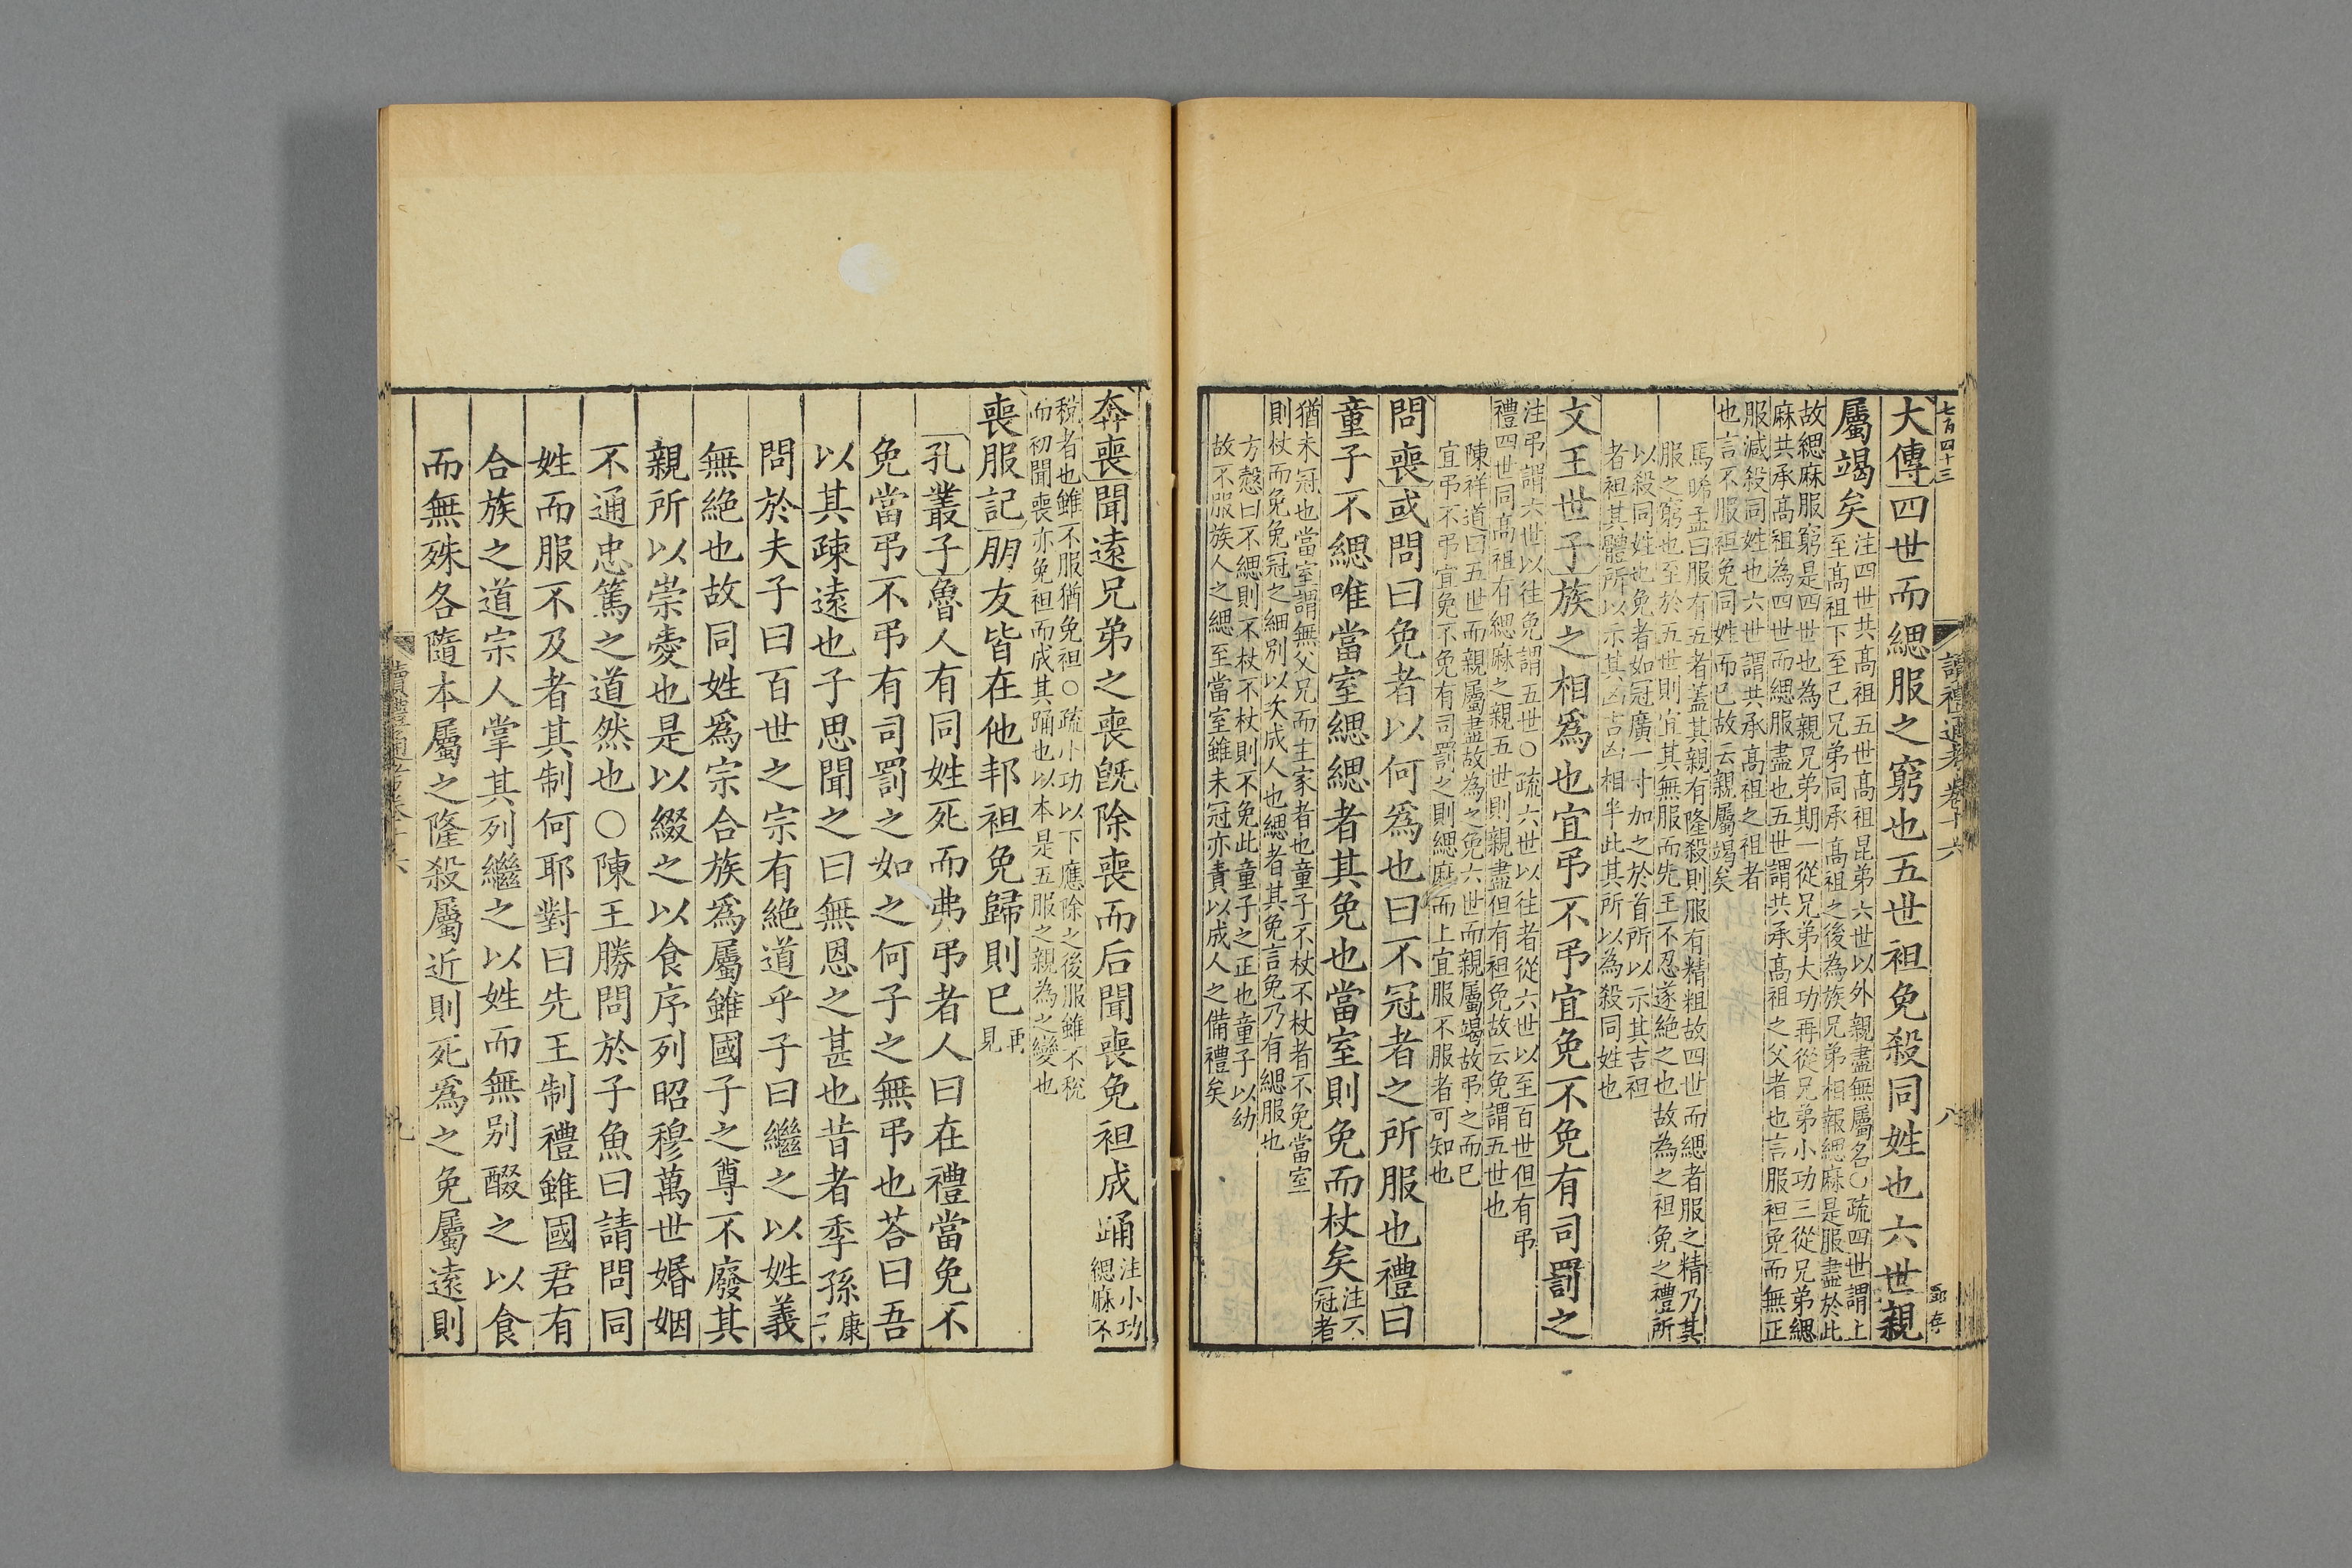 七百四十三
讀禮通考卷十六
八
大傳四世而緦服之窮也五世袒免殺同姓也六世親
屬竭矣
注四世共髙祖五世髙祖昆弟六世以外親盡無屬名○疏四世謂上
至髙祖下至己兄弟同承髙祖之後為族兄弟相報緦麻是服盡於此
故緦麻服窮是四世也為親兄弟期一從兄弟大功再從兄弟小功三從兄弟緦
麻共承髙祖為四世而緦服盡也五世謂共承髙祖之父者也言服袒免而無正
服減殺同姓也六世謂共承髙祖之祖者
也言不服袒免同姓而已故云親屬竭矣
馬晞孟曰服有五者蓋其親有隆殺則服有精粗故四世而緦者服之精乃其
服之窮也至於五世則宜其無服而先王不忍遂絶之也故為之袒免之禮所
以殺同姓也免者如冠廣一寸加之於首所以示其吉袒
者袒其體所以示其凶吉凶相半此其所以為殺同姓也
文王世子族之相爲也宜弔不弔宜免不免有司罰之
注弔謂六世以往免謂五世○疏六世以往者從六世以至百世但有弔
禮四世同髙祖有緦麻之親五世則親盡但有袒免故云免謂五世也
陳祥道曰五世而親屬盡故為之免六世而親屬竭故弔之而已
宜弔不弔宜免不免有司罰之則緦麻而上宜服不服者可知也
問喪或問曰免者以何爲也曰不冠者之所服也禮曰
童子不緦唯當室緦緦者其免也當室則免而杖矣
注不
冠者
猶未冠也當室謂無父兄而主家者也童子不杖不杖者不免當室
則杖而免免冠之細别以次成人也緦者其免言免乃有緦服也
方慤曰不緦則不杖不杖則不免此童子之正也童子以幼
故不服族人之緦至當室雖未冠亦責以成人之備禮矣
奔喪聞遠兄弟之喪旣除喪而后聞喪免袒成踊
注小功
緦麻不
稅者也雖不服猶免袒○疏小功以下應除之後服雖不稅
而初聞喪亦免袒而成其踊也以本是五服之親為之變也
喪服記朋友皆在他邦袒免歸則已
再
見
孔叢子魯人有同姓死而弗弔者人曰在禮當免不
免當弔不弔有司罰之如之何子之無弔也荅曰吾
以其疎遠也子思聞之曰無恩之甚也昔者季孫
康
子
問於夫子曰百世之宗有絶道乎子曰繼之以姓義
無絶也故同姓爲宗合族爲屬雖國子之尊不廢其
親所以崇愛也是以綴之以食序列昭穆萬世婚姻
不通忠篤之道然也○陳王勝問於子魚曰請問同
姓而服不及者其制何耶對曰先王制禮雖國君有
合族之道宗人掌其列繼之以姓而無别醊之以食
而無殊各隨本屬之隆殺屬近則死爲之免屬遠則
讀禮通考卷十六
九